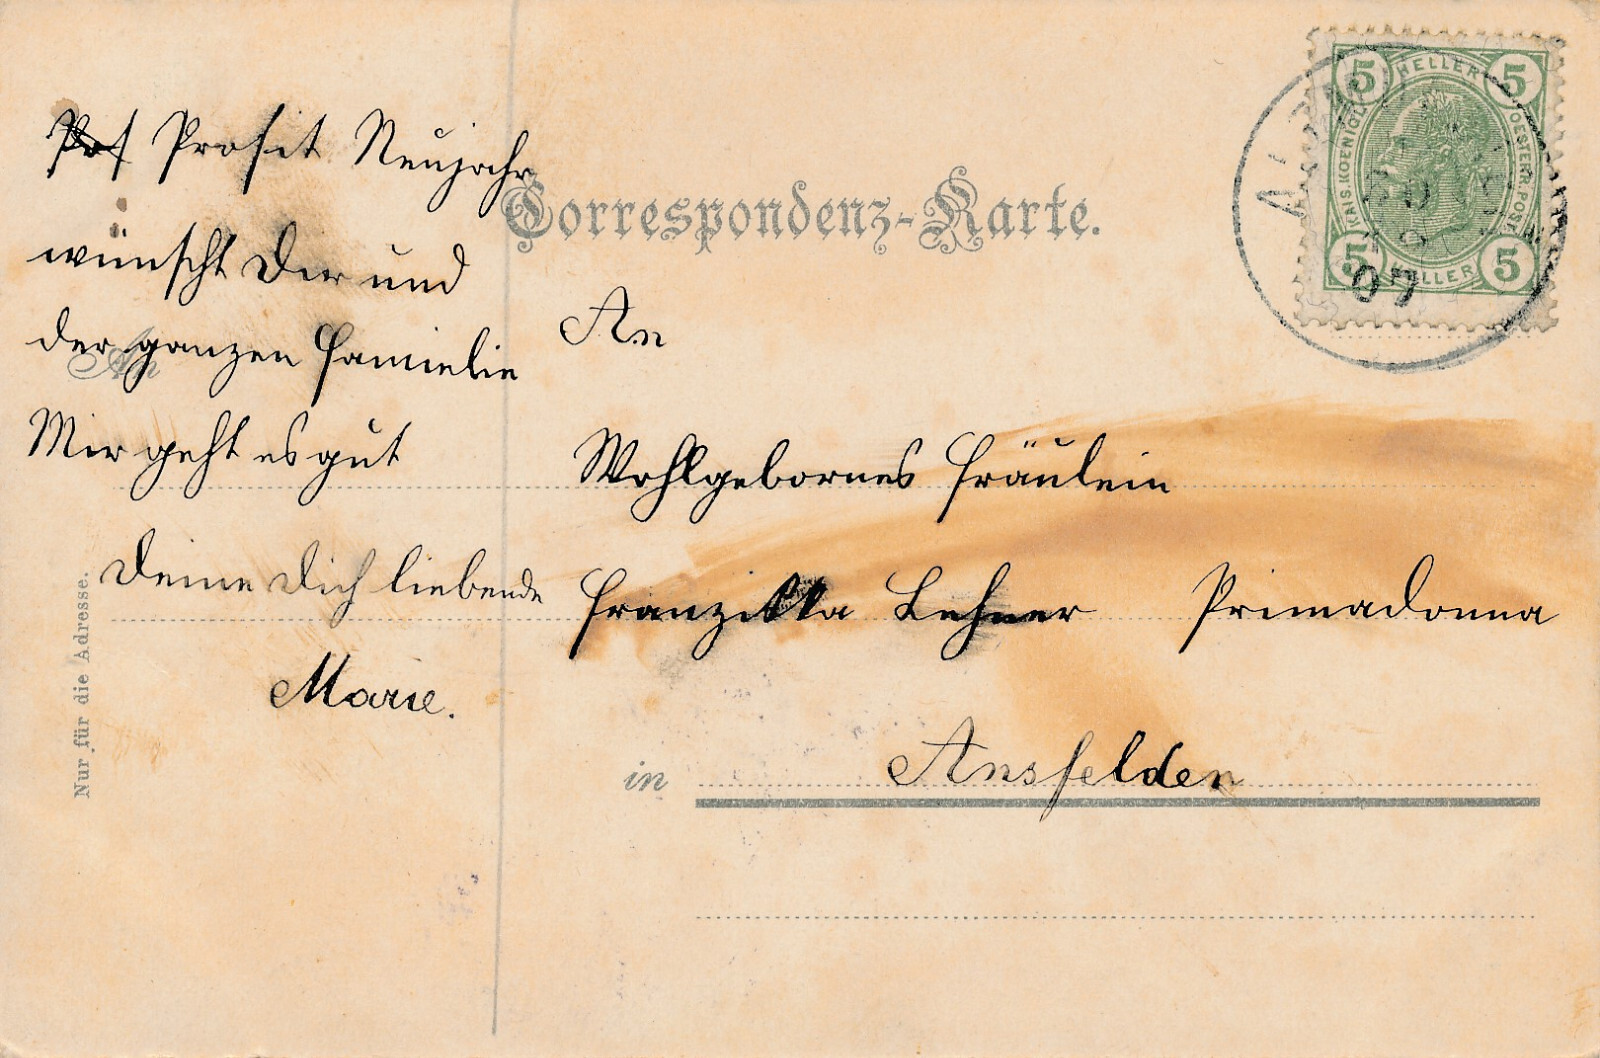 Prosit Neujahr
wünscht Dir und
der ganzen Familie
Mir geht es gut
Deine Dich liebende
Marie.
Correspondenz-Karte.
An
An
Wohlgebornes Fräulein
Franziska Lehner Primadonna
in Ansfelden
Nur für die Adresse.
5 HELLER 5
KAIS. KOENIGL. OESTERR. POST
5 HELLER 5
07